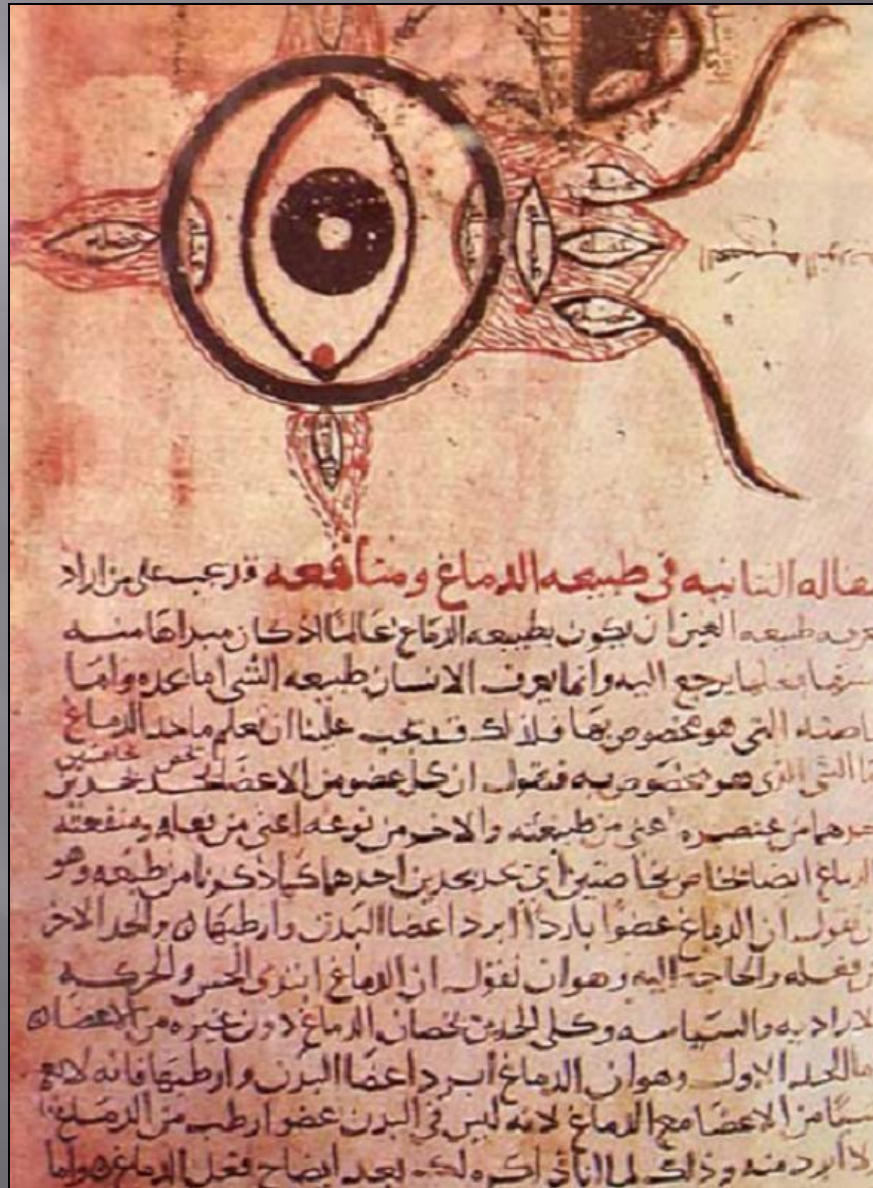 عضله
عضله
عضله
عضله
المقاله الثانيه في طبيعه الدماغ ومنافعه قد يجب على من اراد
طبيعه العين ان يكون بطبيعه الدماغ عالما اذ كان مبداها منه
يرجع اليه وانما يعرف الانسان طبيعه الشي اما حده واما
خاصته التي هو مخصوص بها فلذلك قد يجب علينا ان نعلم ما حد الدماغ
الشي الذي هو مخصوص به فنقول ان كل عضو من الاعضا يحد بحدين
من عنصره اعني من طبيعته والاخر من نوعه اعني من فعله ومنفعته
الدماغ ايضا خاص بخاصتين اي يحد بحدين احدهما كما ذكرنا من طبعه وهو
ان نقول ان الدماغ عضوا باردا ابرد اعضا البدن وارطبها والحد الاخر
من فعله والحاجه اليه وهو ان نقول ان الدماغ ابتدى الحس والحركه
الاراديه والسياسه وكلى الحدين يخصان الدماغ دون غيره من الاعضا
اما الحد الاول وهو ان الدماغ ابرد اعضا البدن وارطبها فانه لا
شيا من الاعضا مع الدماغ لانه ليس في البدن عضو ارطب من الدماغ
ولا ابرد منه وذلك لما انا ذاكره لك بعد ايضاح فعل الدماغ واما